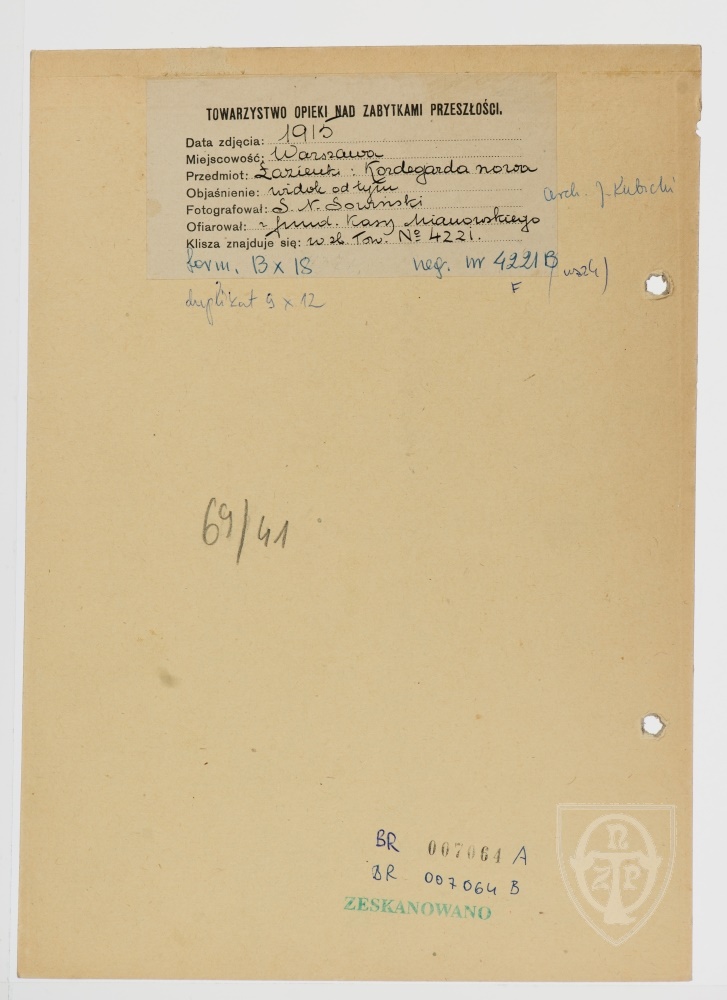 TOWARZYSTWO OPIEKI NAD ZABYTKAMI PRZESZŁOŚCI.
Data zdjęcia: 1915
Miejscowość: Warszawa
Przedmiot: Łazienki: Kordegarda nowa
Objaśnienie: widok od tyłu
arch. J. Kubicki
Fotografował: S. N. Sowiński
Ofiarował: z fund. Kasy Mianowskiego
Klisza znajduje się: w zb. Tow. № 4221.
form. 13 x 18 neg. nr 4221 B
F
duplikat 9 x 12
69/41
BR 007064 A
BR 007064 B
ZESKANOWANO
T O n Z P